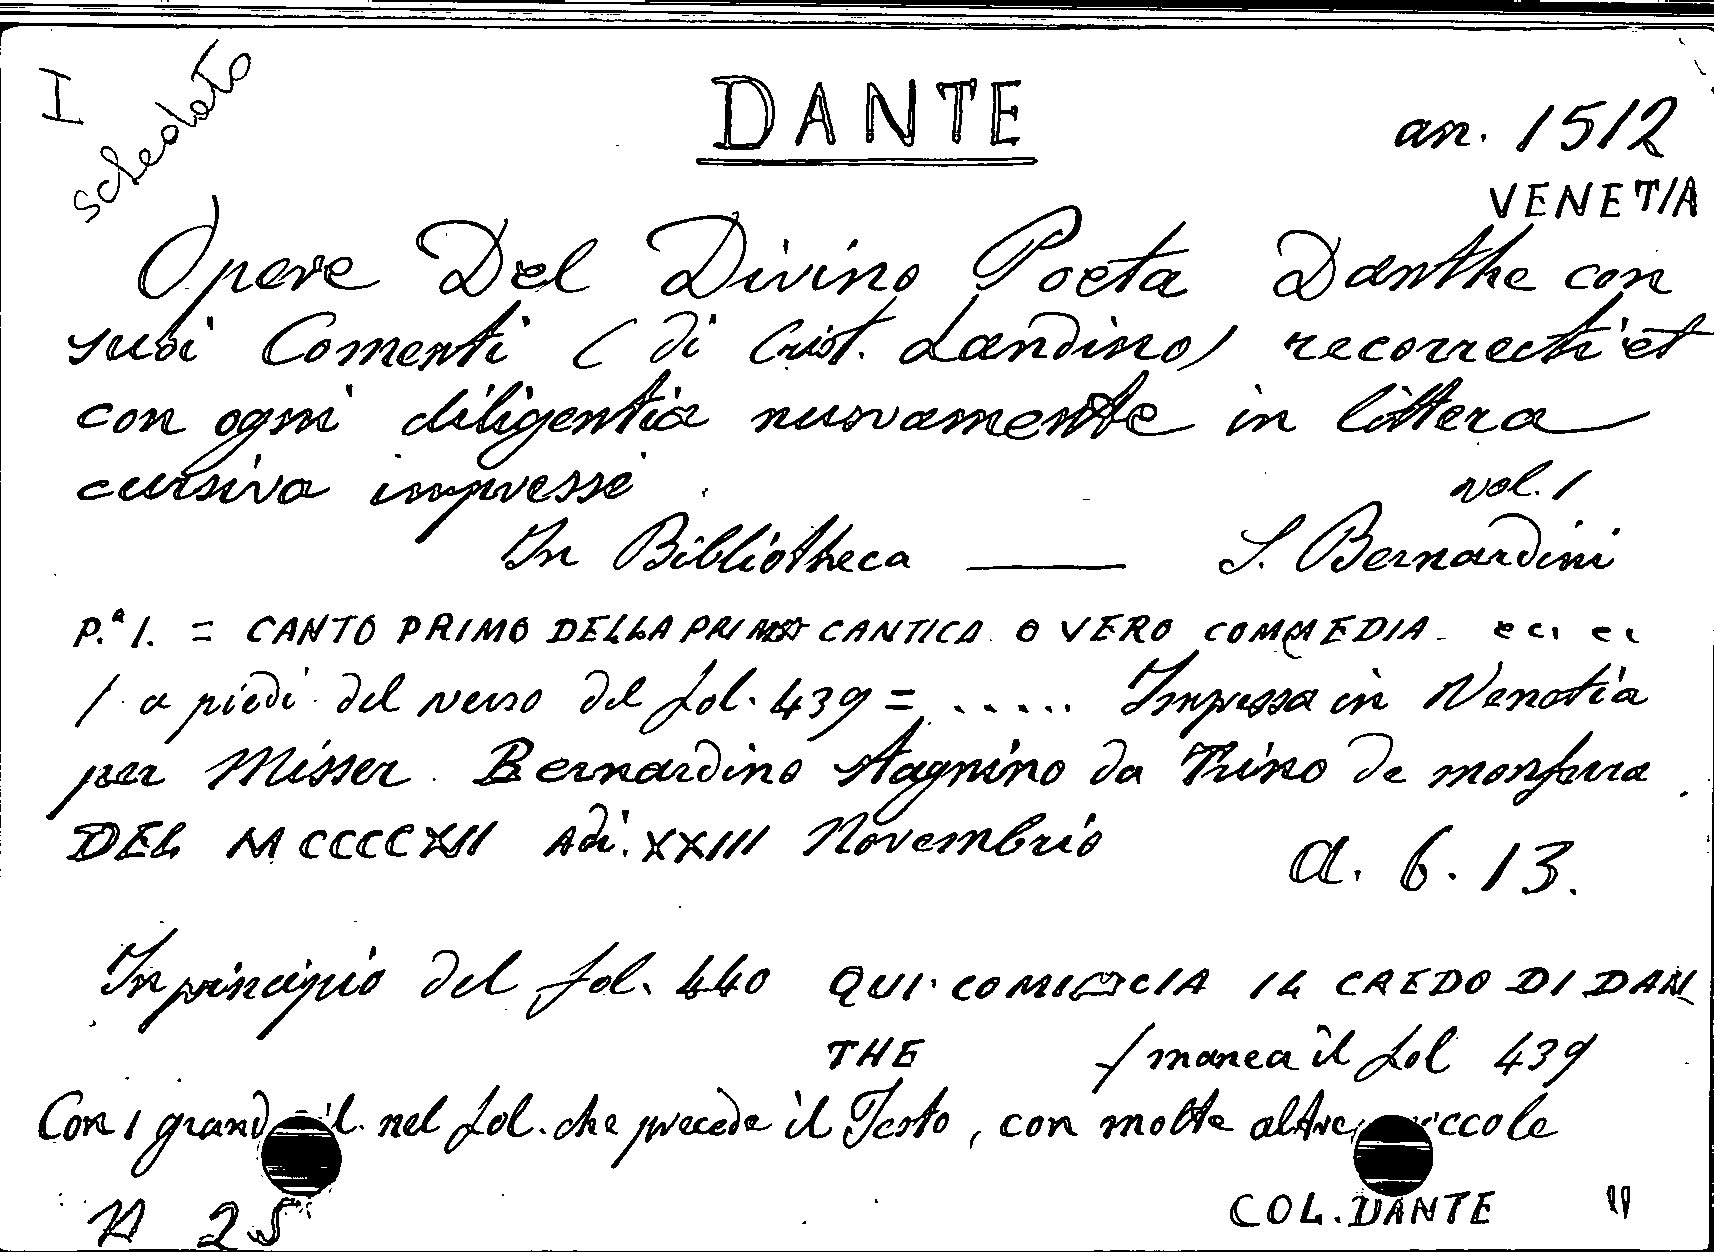 I
schedato
DANTE
an. 1512
VENETIA
Opere Del Divino Poeta Danthe con
suoi Comenti (di Crist. Landino) recorrecti et
con ogni diligentia nuovamente in littera
cursiva impresse
vol. 1
In Bibliotheca — S. Bernardini
P.ª 1. = CANTO PRIMO DELLA PRIMA CANTICA O VERO COMMEDIA. ec. ec
/ a piedi del verso del fol. 439 = ..... Impressa in Venetia
per Misser Bernardino Stagnino da Trino de monferra
DEL MCCCCXII Adi. XXIII Novembrio
a. 6. 13.
In principio del fol. 440 QUI COMINCIA IL CREDO DI DAN
THE / manca il fol 439
Con 1 grand il. nel fol. che precede il Testo, con molte altre piccole
25
COL. DANTE